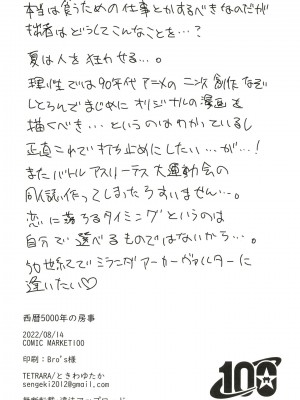 本当は食うための仕事とかするべきなのだが
拙者はどうしてこんなことを…?
夏は人を狂わせる…。
理性では90年代アニメの二次創作なぞ
しとらんでまじめにオリジナルの漫画を
描くべき…というのはわかっているし
正直これで打ち止めにしたい…が…!
またバトルアスリーテス大運動会の
同人誌作ってしまったらすいません…。
恋に落ちるタイミングというのは
自分で選べるものではないから…。
50世紀でミランダアーカーヴァルターに
逢いたい♡
西暦5000年の房事
2022/08/14
COMIC MARKET100
印刷:Bro's様
TETRARA/ときわゆたか
sengeki2012@gmail.com
100